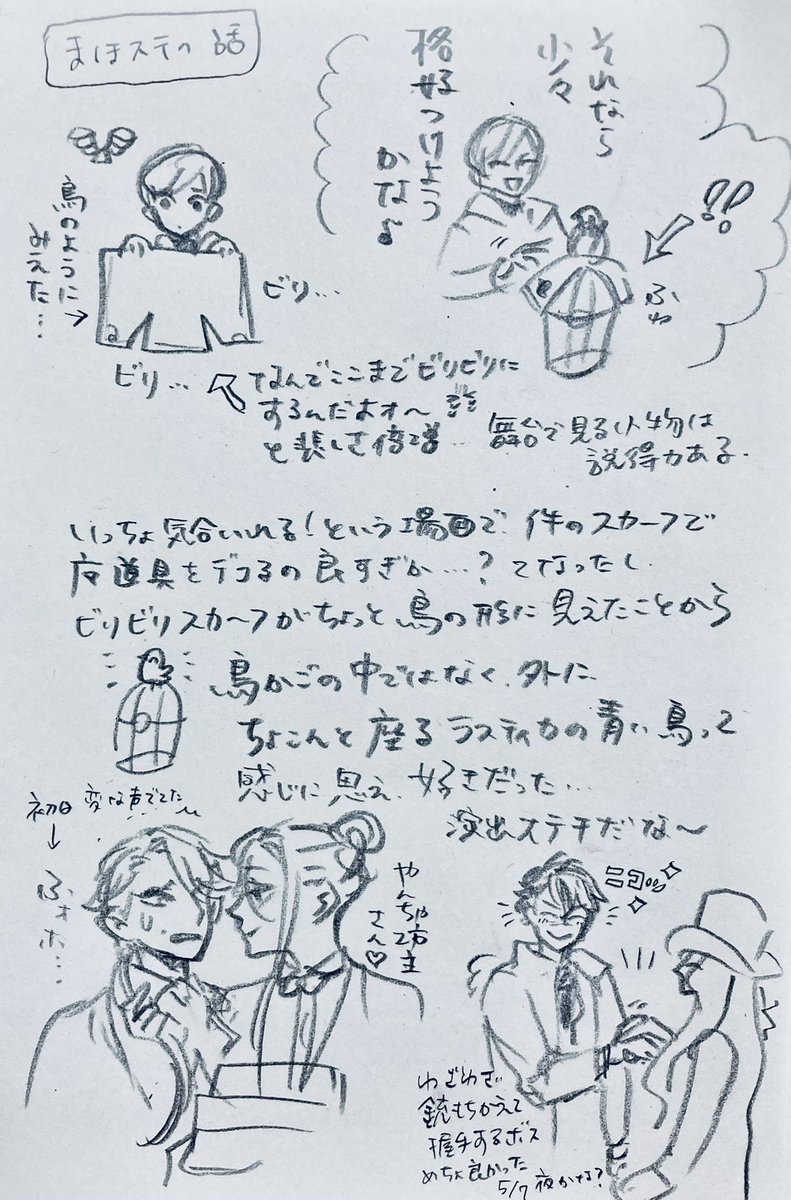 まほステの話
それなら
少々
格好つけよう
かな♪
!!
ふわ
鳥のように
みえた…→
ビリ…
ビリ…
なんでここまでビリビリに
するんだよオ〜
と悲しさ倍増
舞台で見る小物は
説得力ある.
いっちょ気合いれる!という場面で、件のスカーフで
店道具をデコるの良すぎか…?てなったし
ビリビリスカーフがちょっと鳥の形に見えたことから
鳥かごの中ではなく、外に
ちょこんと座るラスティカの青い鳥って
感じに思え、好きだった…
演出ステキだな〜
初日 変な声でてた
↓
ふォホ…
やんちゃ坊主
さん♡
ニコ
わざわざ
銃もちかえて
握手するボス
めちゃ良かった
5/7 夜かな?